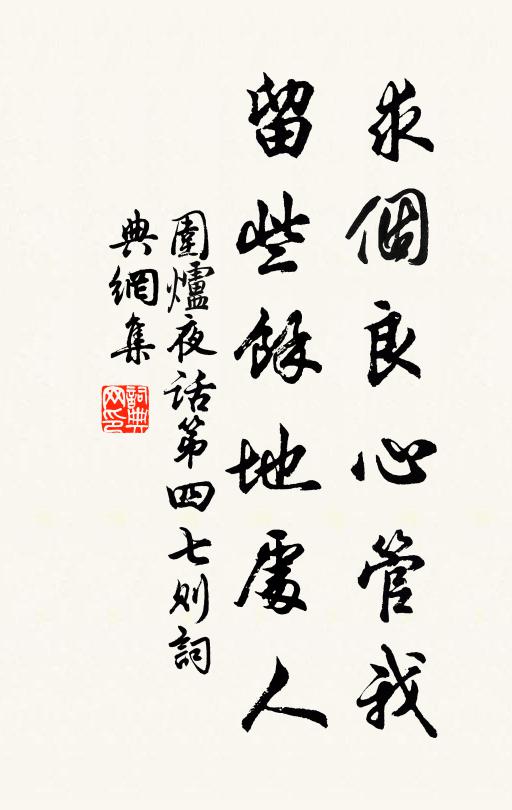 求個良心管我
留些餘地處人
圍爐夜话第四七则詞
典網集
詞典
网印